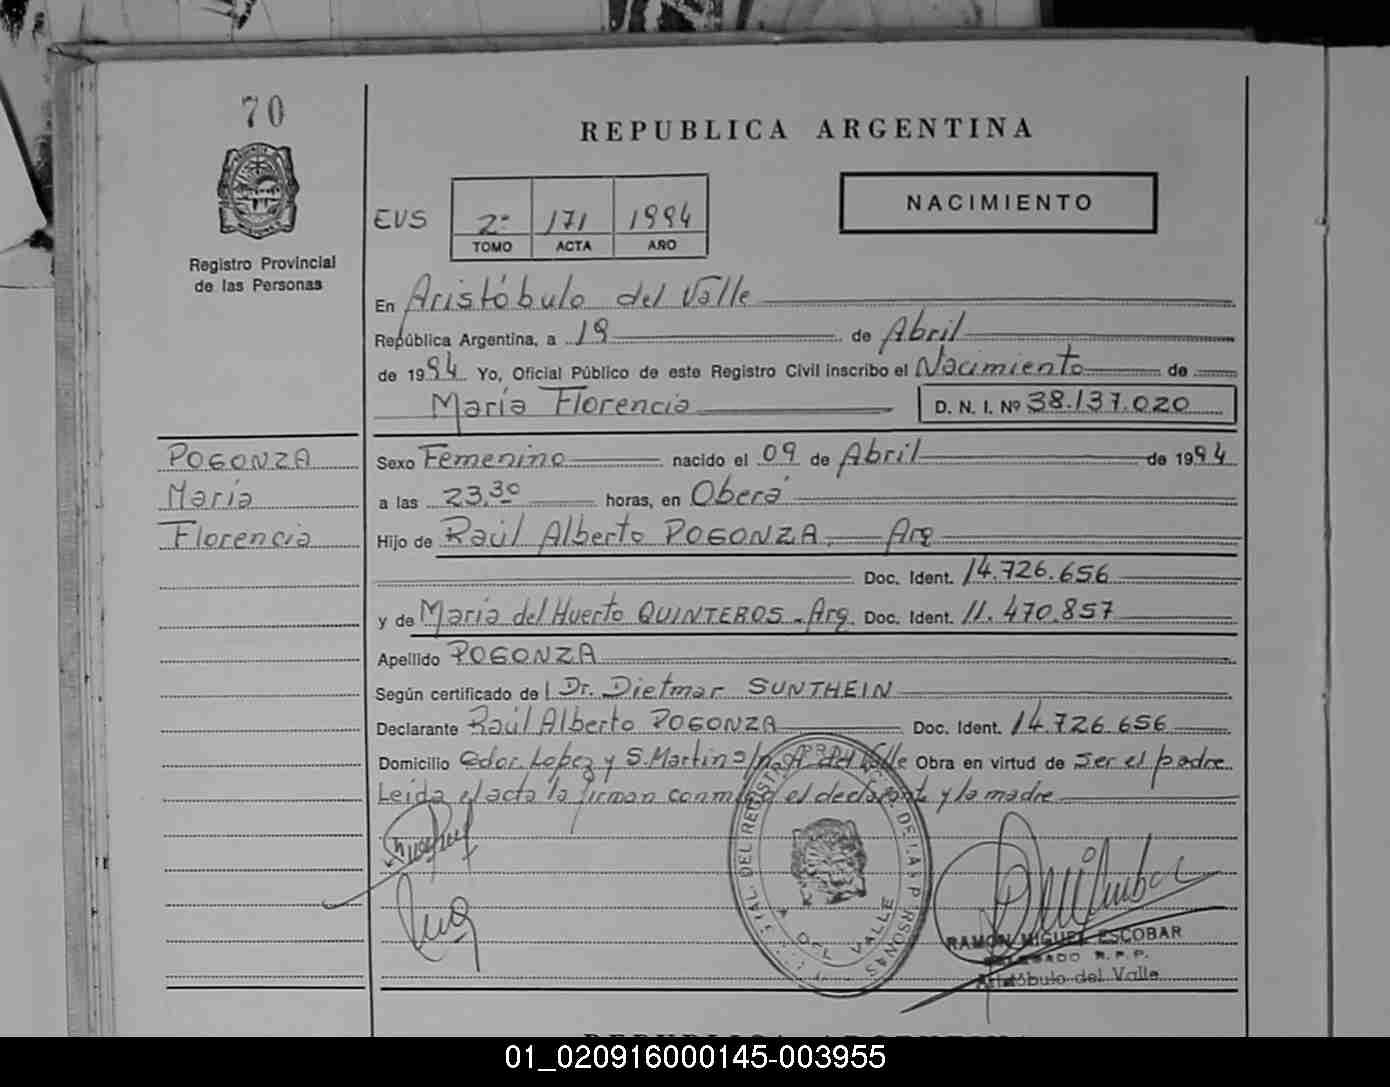 70
REPUBLICA ARGENTINA
NACIMIENTO
EVS
2º 171 1994
TOMO ACTA AÑO
Registro Provincial
de las Personas
En Aristóbulo del Valle
República Argentina, a 19 de Abril
de 1994 Yo, Oficial Público de este Registro Civil inscribo el Nacimiento de
María Florencia D. N. I. Nº 38.137.020
POGONZA
María
Florencia
Sexo Femenino nacido el 09 de Abril de 1994
a las 23,30 horas, en Oberá
Hijo de Raúl Alberto POGONZA, Arg
Doc. Ident. 14.726.656
y de María del Huerto QUINTEROS - Arg. Doc. Ident. 11.470.857
Apellido POGONZA
Según certificado de l Dr. Dietmar SUNTHEIN
Declarante Raúl Alberto POGONZA Doc. Ident. 14.726.656
Domicilio Cdor. Lopez y S. Martin s/n A. del Valle Obra en virtud de ser el padre
Leida el acta la firman conmigo el declarante y la madre
DEL REGISTRO PROVINCIAL DE LAS PERSONAS
A. DEL VALLE
RAMON MIGUEL ESCOBAR
DELEGADO R.P.P.
Aristóbulo del Valle
REPUBLICA ARGENTINA
01_020916000145-003955